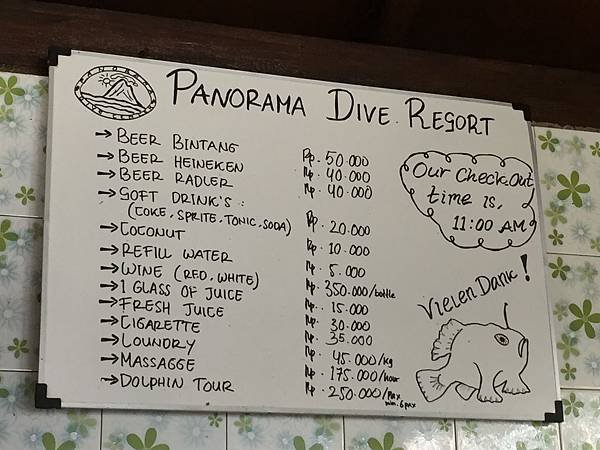 PANORAMA
PANORAMA DIVE RESORT
→ BEER BINTANG Rp. 50.000
→ BEER HEINEKEN Rp. 40.000
→ BEER RADLER Rp. 40.000
→ SOFT DRINK'S :
(COKE, SPRITE, TONIC, SODA) Rp. 20.000
→ COCONUT Rp. 10.000
→ REFILL WATER Rp. 5.000
→ WINE (RED, WHITE) Rp. 350.000/bottle
→ 1 GLASS OF JUICE Rp. 15.000
→ FRESH JUICE Rp. 30.000
→ CIGARETTE Rp. 35.000
→ LOUNDRY Rp. 45.000/kg
→ MASSAGGE Rp. 175.000/hour
→ DOLPHIN TOUR Rp. 250.000/pax
min. 6 pax
Our Check Out
time is.
11:00 AM
Vielen Dank!